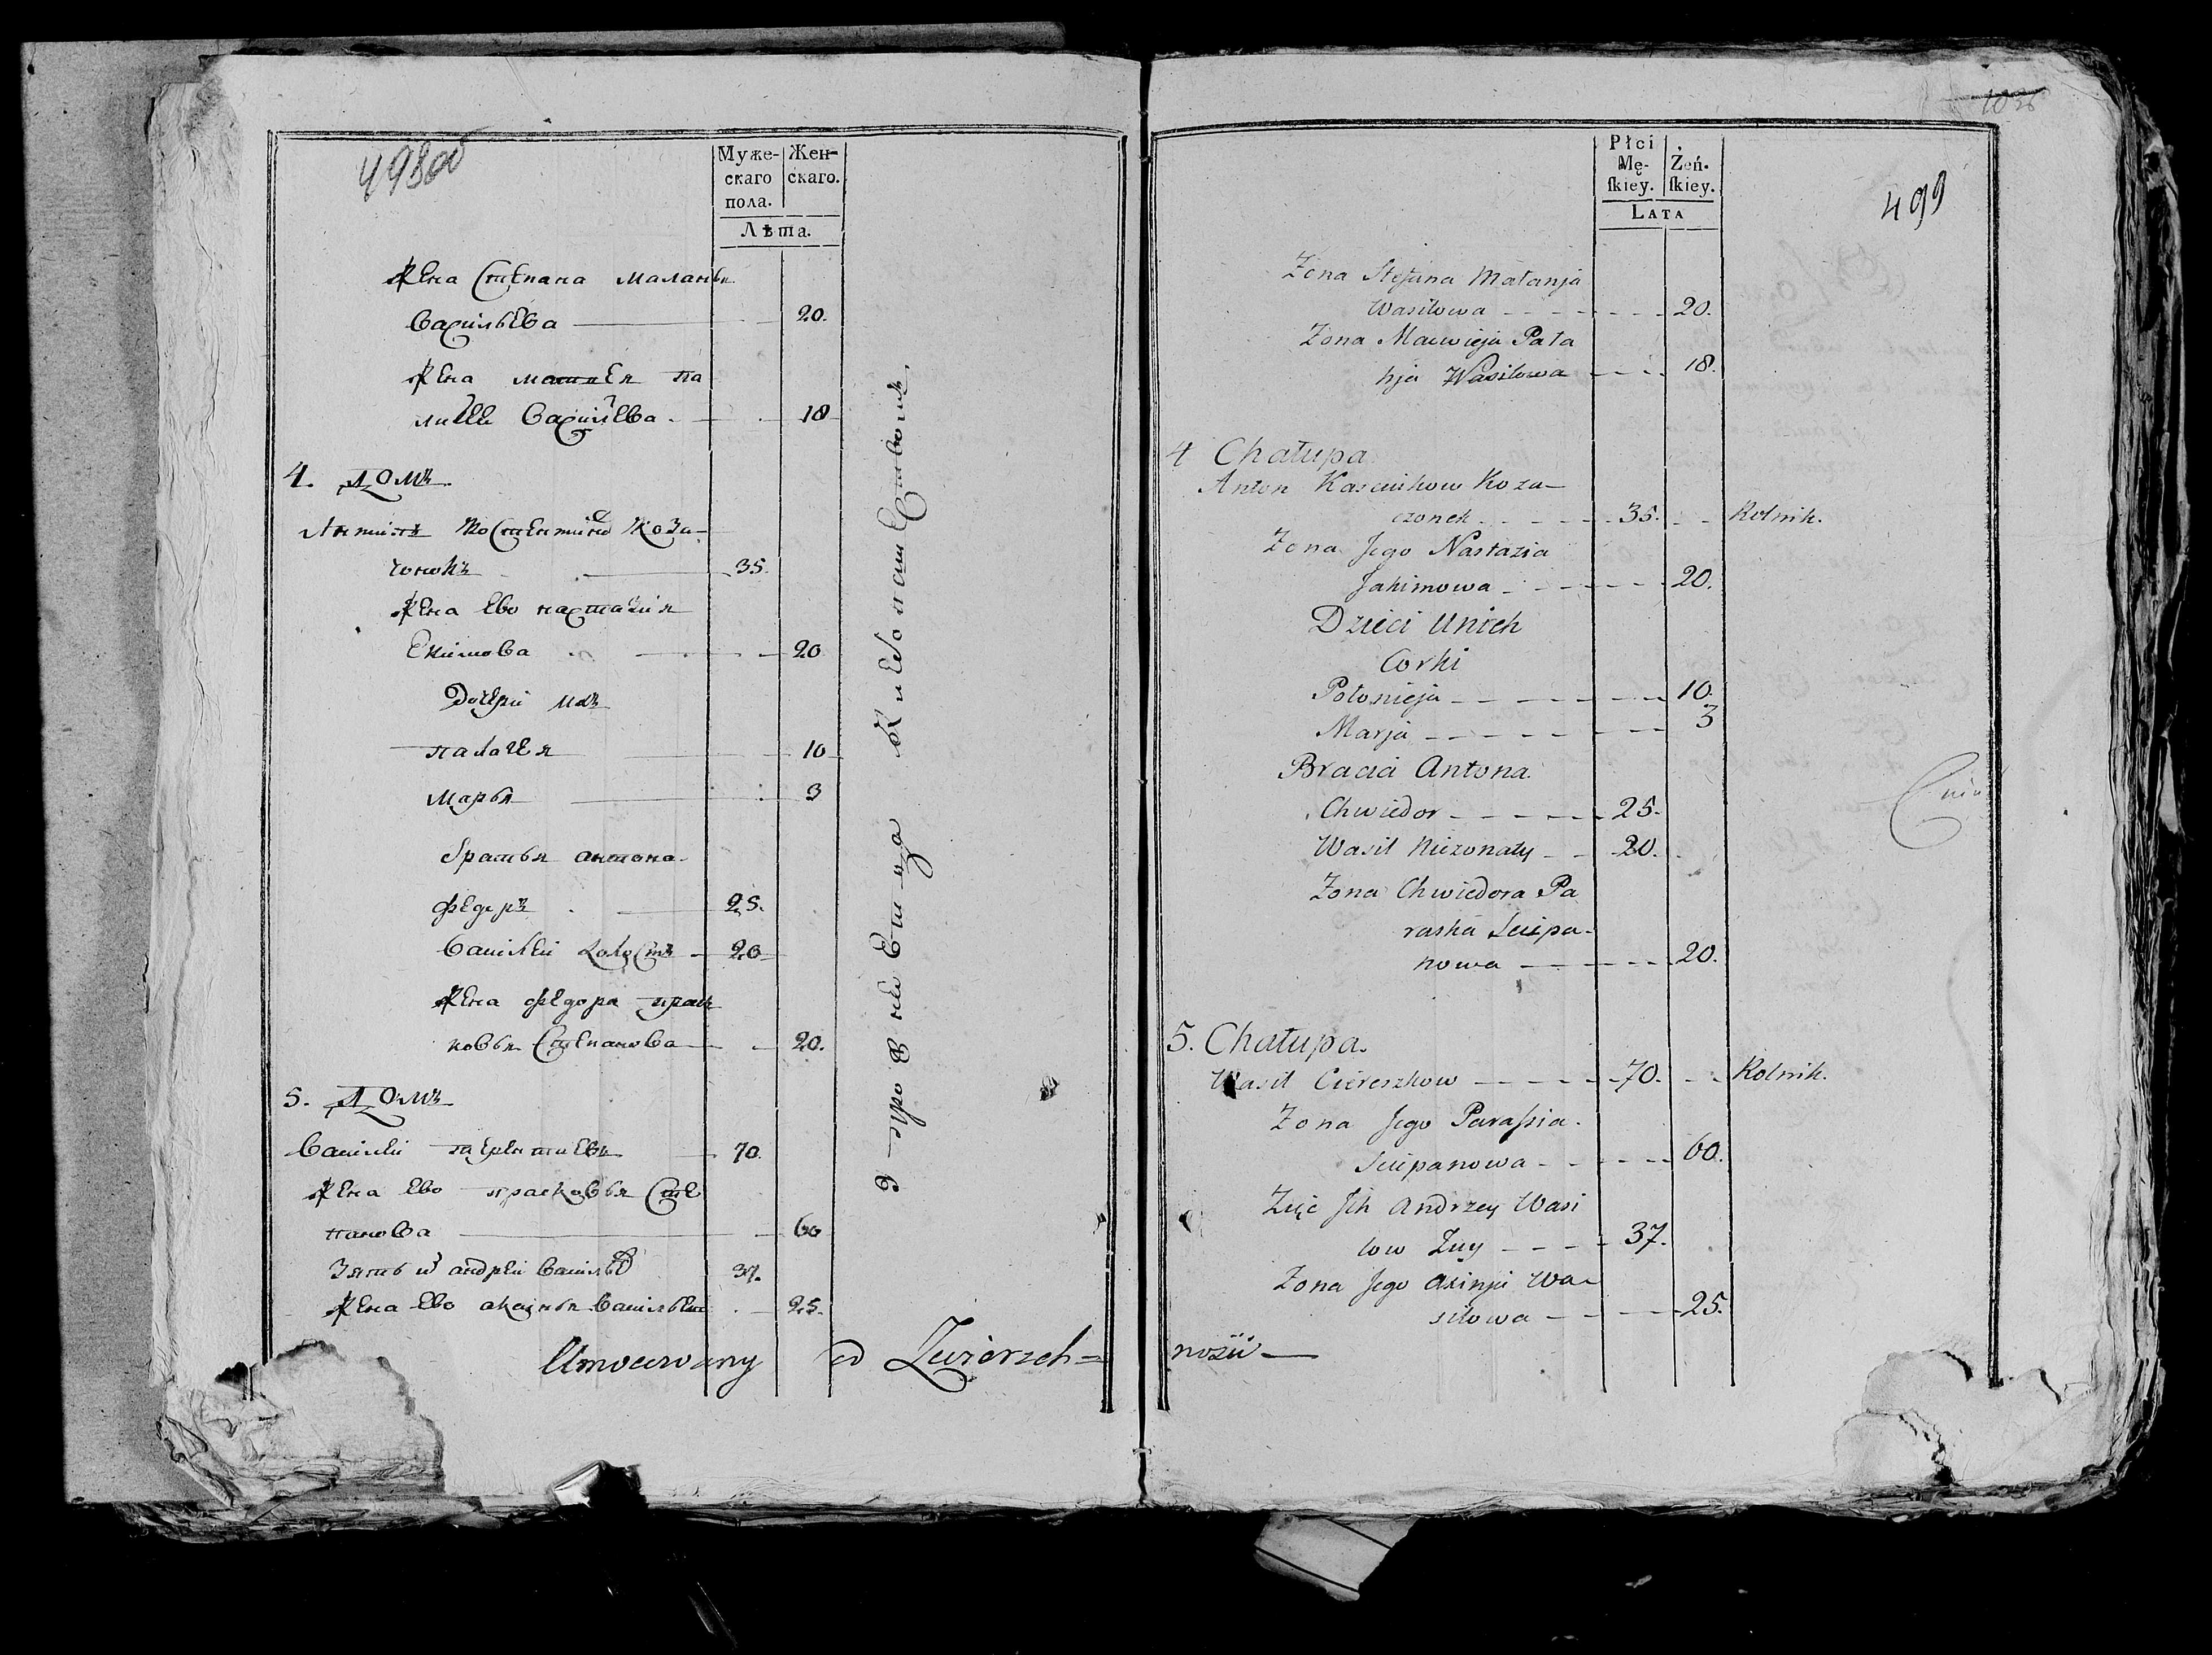 498об
Муже-
скаго
пола.
Жен-
скаго.
Лѣта.
Жена Степана Маланья
Васильева 20.
Жена Матвея Па
Васильева 18
4. Домъ
Антонъ Костентинов Коза-
чонокъ 35.
Жена ево Настазия
Екимова 20
Дочери ихъ
Палагея 10
Марья 3
Братья Антона
Федоръ 25.
Василеи холостъ 20
Жена Федора Прас
ковья Степанова 20.
5. Домъ
Василеи Терентиевъ 70.
Жена ево Прасковья Сте
панова 60
Зять их Андреи Васильев 37.
Жена ево Аксинья Васильева 25.
Umocowany od Zwierzch=
1036
499
Płci
Mę-
ſkiey.
Żeń-
ſkiey.
LATA
Zona Stefana Małanja
Wasilowa 20.
Zona Macwieja Pała
hja Wasilowa 18.
4 Chałupa
Anton Kascinkow Koza-
czonek 35. Rolnik.
Zona Jego Nastazia
Jakimowa 20.
Dzieci Unich
Corki
Połonieja 10.
Marja 3
Bracia Antona
Chwiedor 25.
Wasil Niezonaty 20.
Zona Chwiedora Pa
raska Sciepa-
nowa 20.
5. Chałupa.
Wasil Ciereszkow 70. Rolnik.
Zona Jego Paraſsia
Sciepanowa 60.
Zięć Jch Andrzey Wasi
low Zuy 37.
Zona Jego Axinja Wa-
siłowa 25.
nosci